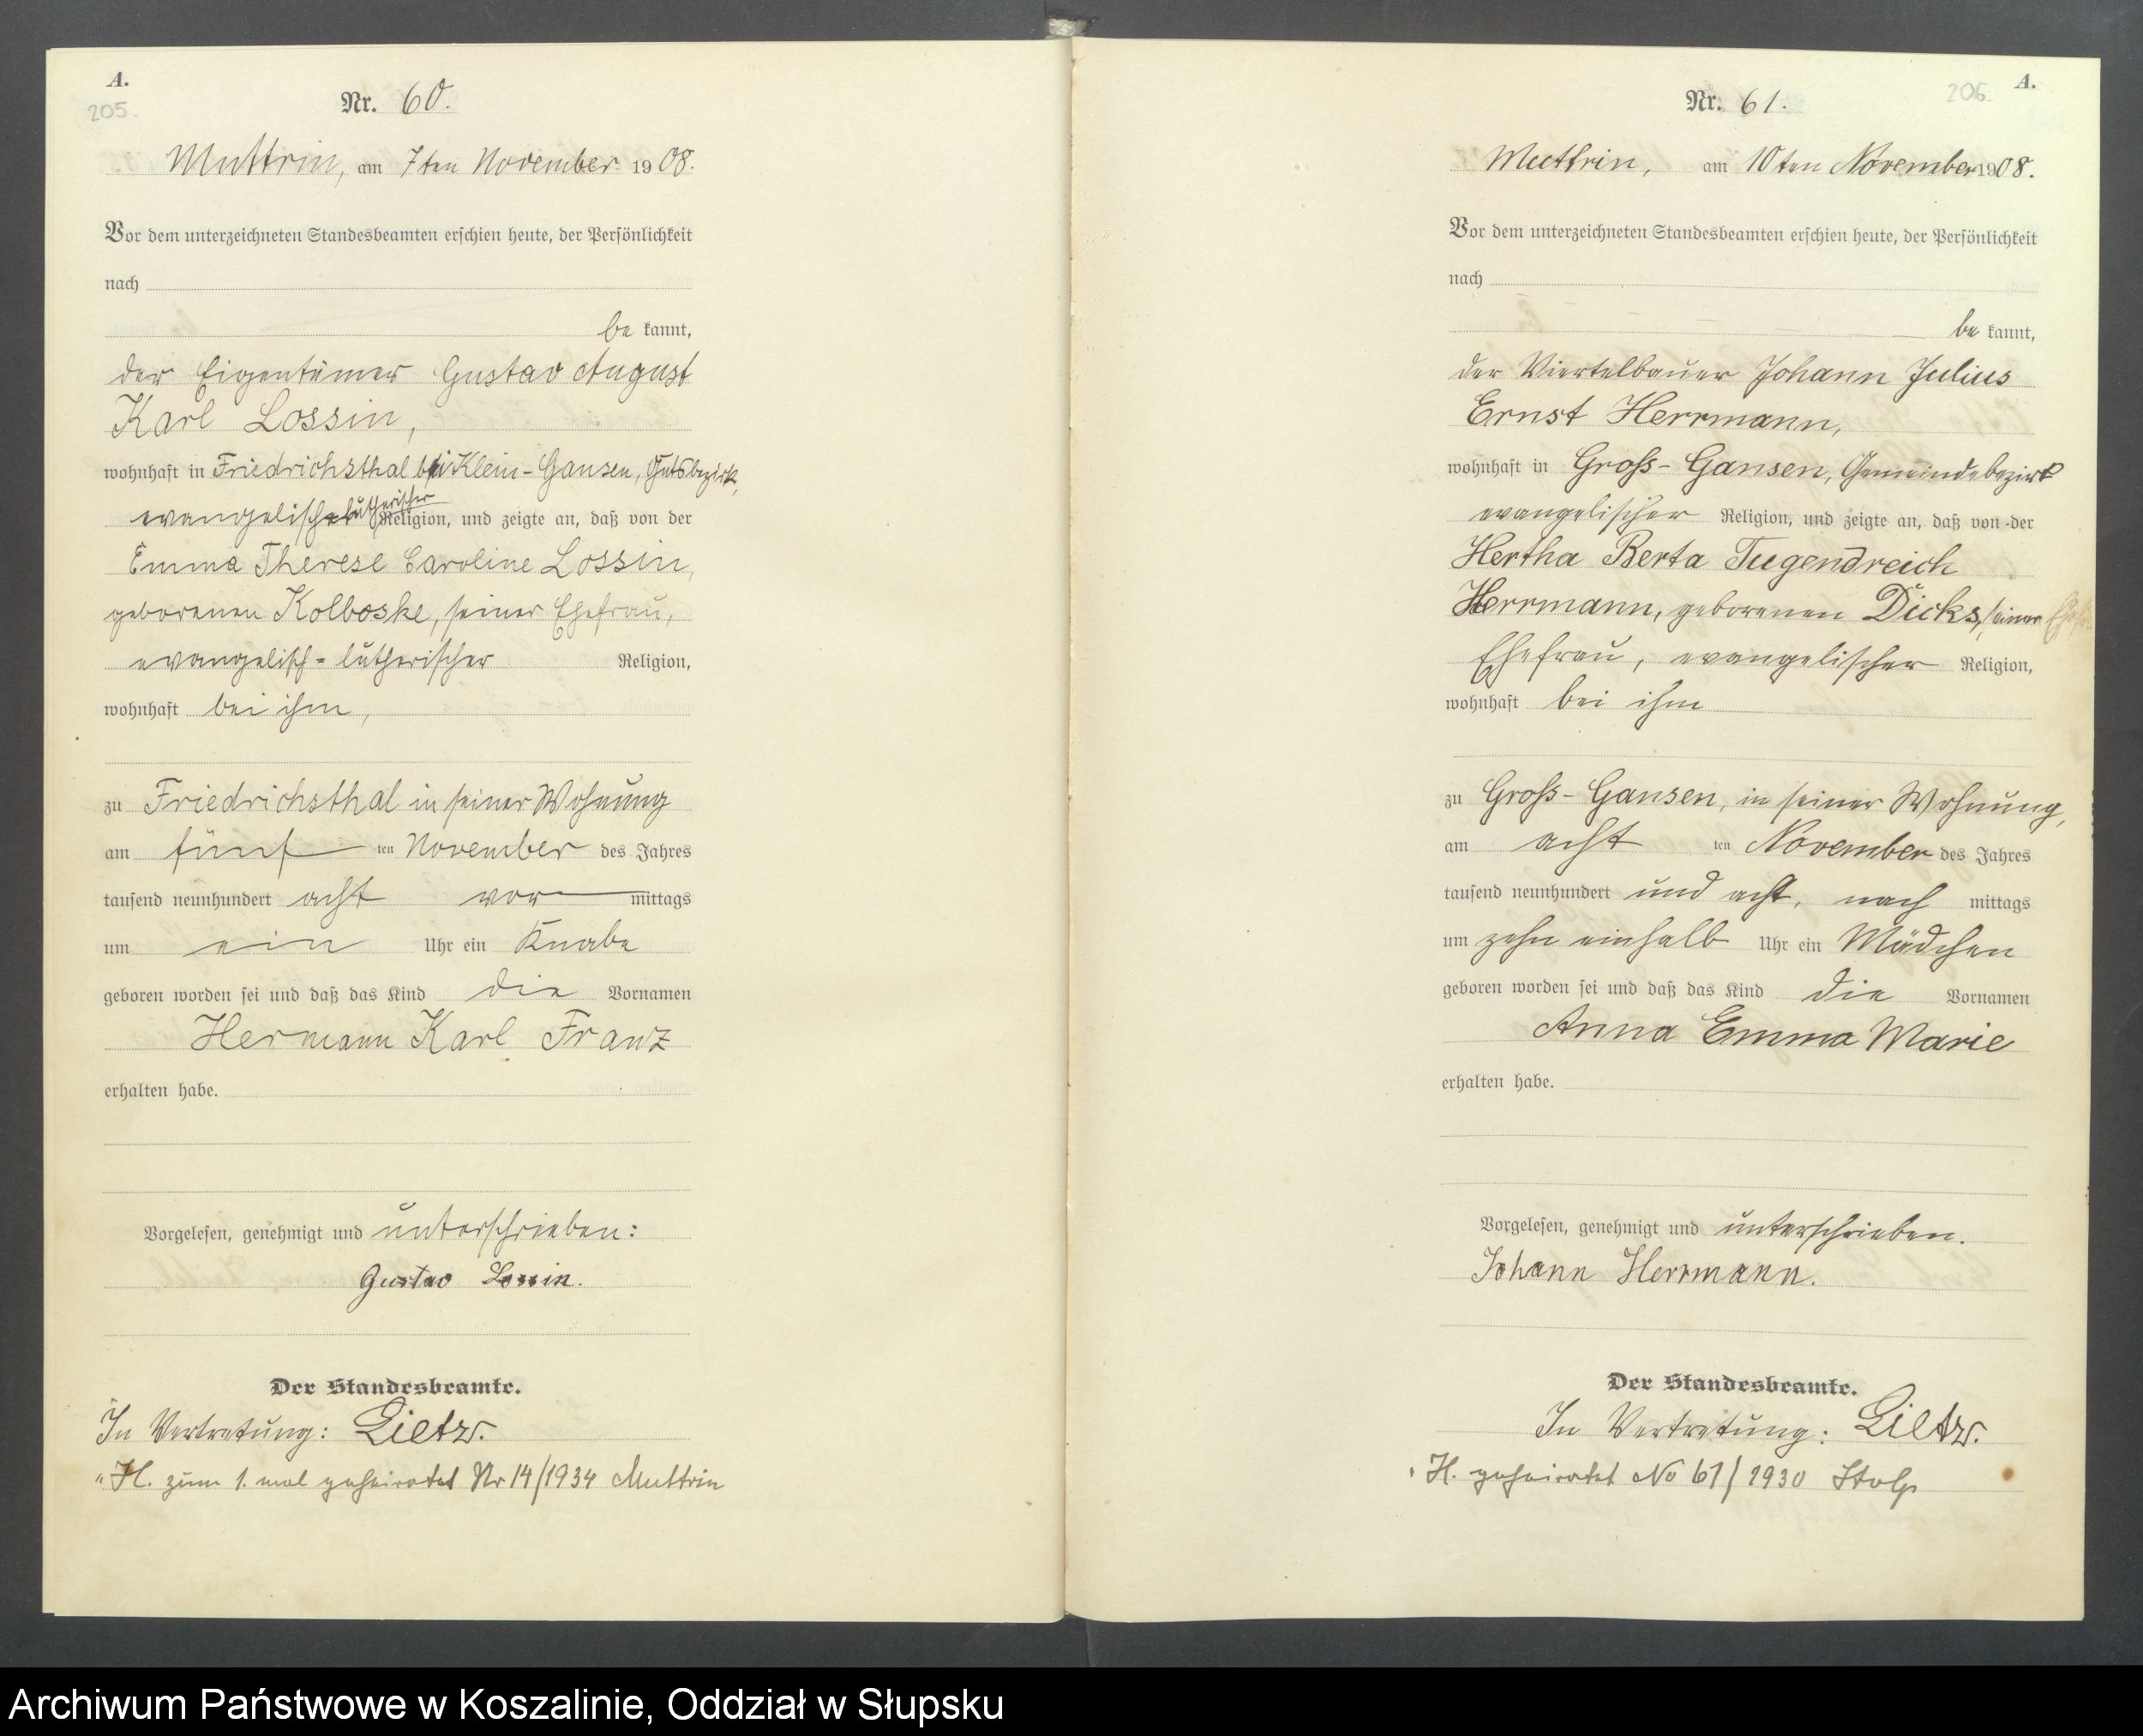 A.
205.
Nr. 60.
Muttrin, am 7ten November 1908.
Vor dem unterzeichneten Standesbeamten erschien heute, der Persönlichkeit
nach
be kannt,
der Eigentümer Gustav August
Karl Lossin,
wohnhaft in Friedrichsthal bei Klein-Gansen, Gutsbezirk,
evangelisch-lutherischer Religion, und zeigte an, daß von der
Emma Therese Caroline Lossin,
geborenen Kolboske, seiner Ehefrau,
evangelisch-lutherischer Religion,
wohnhaft bei ihm,
zu Friedrichsthal in seiner Wohnung
am fünf ten November des Jahres
tausend neunhundert acht vor mittags
um ein Uhr ein Knabe
geboren worden sei und daß das Kind die Vornamen
Hermann Karl Franz
erhalten habe.
Vorgelesen, genehmigt und unterschrieben:
Gustav Lossin.
Der Standesbeamte.
In Vertretung: Lietz.
"H. zum 1. mal geheiratet Nr 14/1934 Muttrin
A.
206.
Nr. 61.
Muttrin, am 10ten November 1908.
Vor dem unterzeichneten Standesbeamten erschien heute, der Persönlichkeit
nach
be kannt,
der Viertelbauer Johann Julius
Ernst Herrmann,
wohnhaft in Groß-Gansen, Gemeindebezirk
evangelischer Religion, und zeigte an, daß von der
Hertha Berta Tugendreich
Herrmann, geborenen Dicks, seiner
Ehefrau, evangelischer Religion,
wohnhaft bei ihm
zu Groß-Gansen, in seiner Wohnung,
am acht ten November des Jahres
tausend neunhundert und acht, nach mittags
um zehn einhalb Uhr ein Mädchen
geboren worden sei und daß das Kind die Vornamen
Anna Emma Marie
erhalten habe.
Vorgelesen, genehmigt und unterschrieben.
Johann Herrmann.
Der Standesbeamte.
In Vertretung: Lietz.
H. geheiratet No 61/1930 Stolp
Archiwum Państwowe w Koszalinie, Oddział w Słupsku